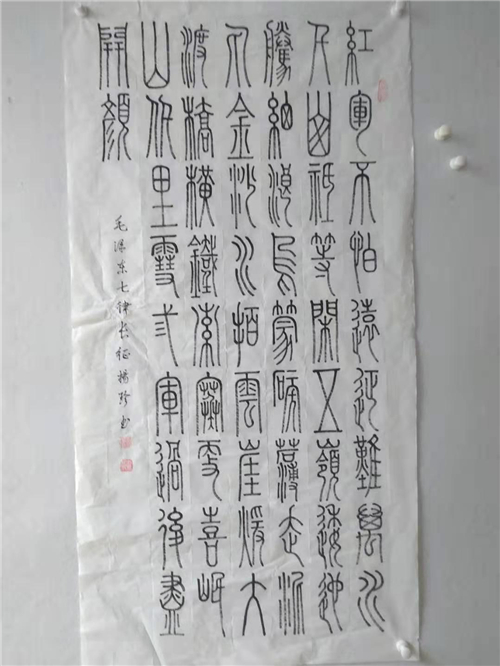 紅軍不怕遠征難萬水
千山祗等閑五嶺逶迤
騰細浪烏蒙磅礴走泥
丸金沙水拍雲崖暖大
渡橋橫鐵索寒更喜岷
山千里雪三軍過後盡
開顏
毛澤东七律长征楊珍书